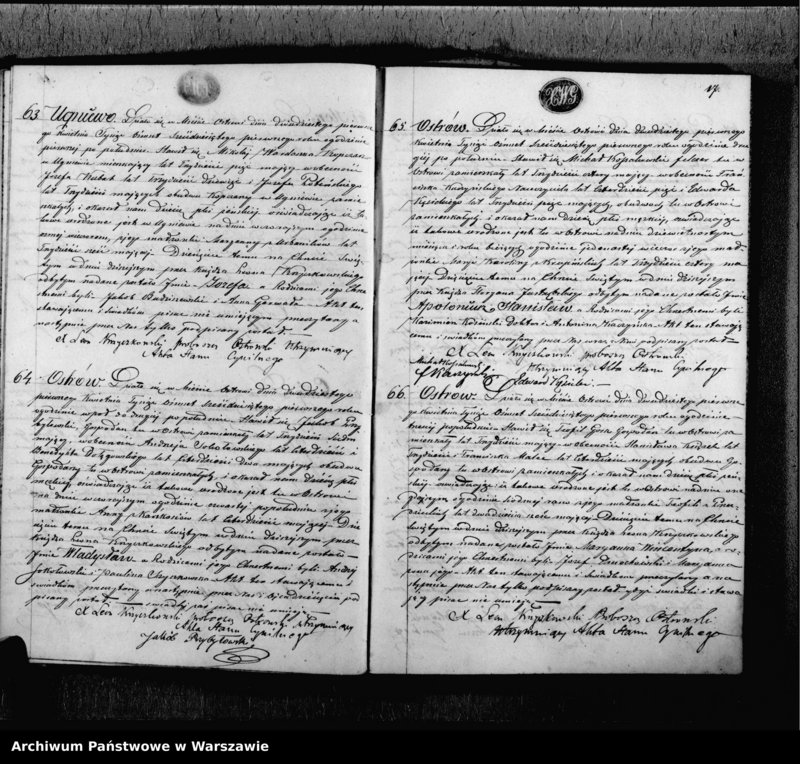 63. Ugniewo. Działo się w Mieście Ostrowi dnia dwudziestego pierwsze-
go Kwietnia Tysiąc Ośmset Sześćdziesiątego pierwszego roku o godzinie
pierwszej po południu. Stawił się Mikołaj Kopczan
w Ugniewie mieszkający lat Trzydzieści pięć mający w obecności
Józefa Kubat lat trzydzieści dziewięć i Józefa
lat Trzydzieści mających obudwu w Ugniewie zamie-
szkałych, i okazał nam Dziecię płci żeńskiej oświadczając iż ta-
kowe urodzone jest w Ugniewie na dniu wczorajszym o godzinie
wieczorem, z jego małżonki Maryanny z lat
Trzydzieści sześć mającej. Dziecięciu temu na Chrzcie Świę-
tym w dniu dzisiejszym przez Księdza Leona Knyszkowskiego
odbytym nadane zostało Imie Józefa a Rodzicami jego Chrze-
stnemi byli Jakób i Anna Akt ten
stawającemu i świadkom pisać nie umiejącym przeczytany a
następnie przez Nas tylko podpisany został
X Leon Knyszkowski Proboszcz Ostrowski Utrzymujący
Akta Stanu Cywilnego
64. Ostrów. Działo się w Mieście Ostrowi dnia dwudziestego
pierwszego Kwietnia Tysiąc Ośmset Sześćdziesiątego pierwszego roku
o godzinie wpół do drugiej po południu. Stawił się Jakób Przy-
byłowski, Gospodarz tu w Ostrowi zamieszkały lat Trzydzieści siedm
mający w obecności Andrzeja Sokołowskiego lat Czterdzieści i
Benedykta lat Czterdzieści dwa mających obudwu
Gospodarzy tu w Ostrowi zamieszkałych, i okazał nam Dziecię płci
męzkiej oświadczając iż takowe urodzone jest tu w Ostrowi
na dniu wczorajszym o godzinie czwartej po południu z jego
małżonki Anny z lat Czterdzieści mającej. Dzie-
cięciu temu na Chrzcie Świętym w dniu dzisiejszym przez
Księdza Leona Knyszkowskiego odbytym nadane zostało
Imie Władysław a Rodzicami jego Chrzestnemi byli Andrzej
Sokołowski i Paulina Akt ten stawającemu i
świadkom przeczytany a następnie przez Nas i Ojca Dziecięcia pod-
pisany został świadkowie pisać nie umieją
X Leon Knyszkowski Proboszcz Ostrowski Utrzymujący
Akta Stanu Cywilnego
Jakób Przybyłowski
17.
65. Ostrów. Działo się w Mieście Ostrowi dnia dwudziestego pierwszego
Kwietnia Tysiąc Ośmset Sześćdziesiątego pierwszego roku o godzinie dru-
giej po południu. Stawił się Michał Kopalewski felczer tu w
Ostrowi zamieszkały lat Trzydzieści cztery mający w obecności Fran-
ciszka Kaczyńskiego Nauczyciela lat Czterdzieści pięć i Edwarda
lat Trzydzieści pięć mających, obudwóch tu w Ostrowi
zamieszkałych, i okazał nam Dziecię płci męzkiej, oświadczając
iż takowe urodzone jest tu w Ostrowi na dniu dziewiętnastym
miesiąca i roku bieżących o godzinie jedenastej wieczór z jego mał-
żonki Maryi Karoliny z lat Trzydzieści cztery ma-
jącej. Dziecięciu temu na Chrzcie Świętym w dniu dzisiejszym
przez Księdza odbytym nadane zostało Imie
Apoloniusz Stanisław a Rodzicami jego Chrzestnemi byli
Kazimierz Doktor i Antonina Kaczyńska. Akt ten stawają-
cemu i świadkom przeczytany przez Nas wraz z nimi podpisany został
X Leon Knyszkowski Proboszcz Ostrowski
Michał Kopalewski Utrzymujący Akta Stanu Cywilnego
F Kaczyński Edward
66. Ostrów. Działo się w Mieście Ostrowi dnia dwudziestego pierwsze-
go Kwietnia Tysiąc Ośmset Sześćdziesiątego pierwszego roku o godzinie
trzeciej po południu Stawił się Teofil Góra Gospodarz tu w Ostrowi za-
mieszkały lat Trzydzieści mający w obecności Stanisława lat
Trzydzieści i Franciszka lat Czterdzieści mających obudwu Go-
spodarzy tu w Ostrowi zamieszkałych i okazał nam Dziecię płci żeń-
skiej oświadczając iż takowe urodzone jest tu w Ostrowi na dniu wczo-
rajszym o godzinie siódmej rano z jego małżonki Teofili z
lat dwadzieścia sześć mającej. Dziecięciu temu na Chrzcie
Świętym w dniu dzisiejszym przez Księdza Leona Knyszkowskiego
odbytym nadane zostało Imie Maryanna Wincentyna, a ro-
dzicami jego Chrzestnemi byli Józef i Maryanna
Akt ten stawającemu i świadkom przeczytany a na-
stępnie przez Nas tylko podpisany został gdyż świadki i stawa-
jący pisać nie umieją
X Leon Knyszkowski Proboszcz Ostrowski
Utrzymujący Akta Stanu Cywilnego
Archiwum Państwowe w Warszawie